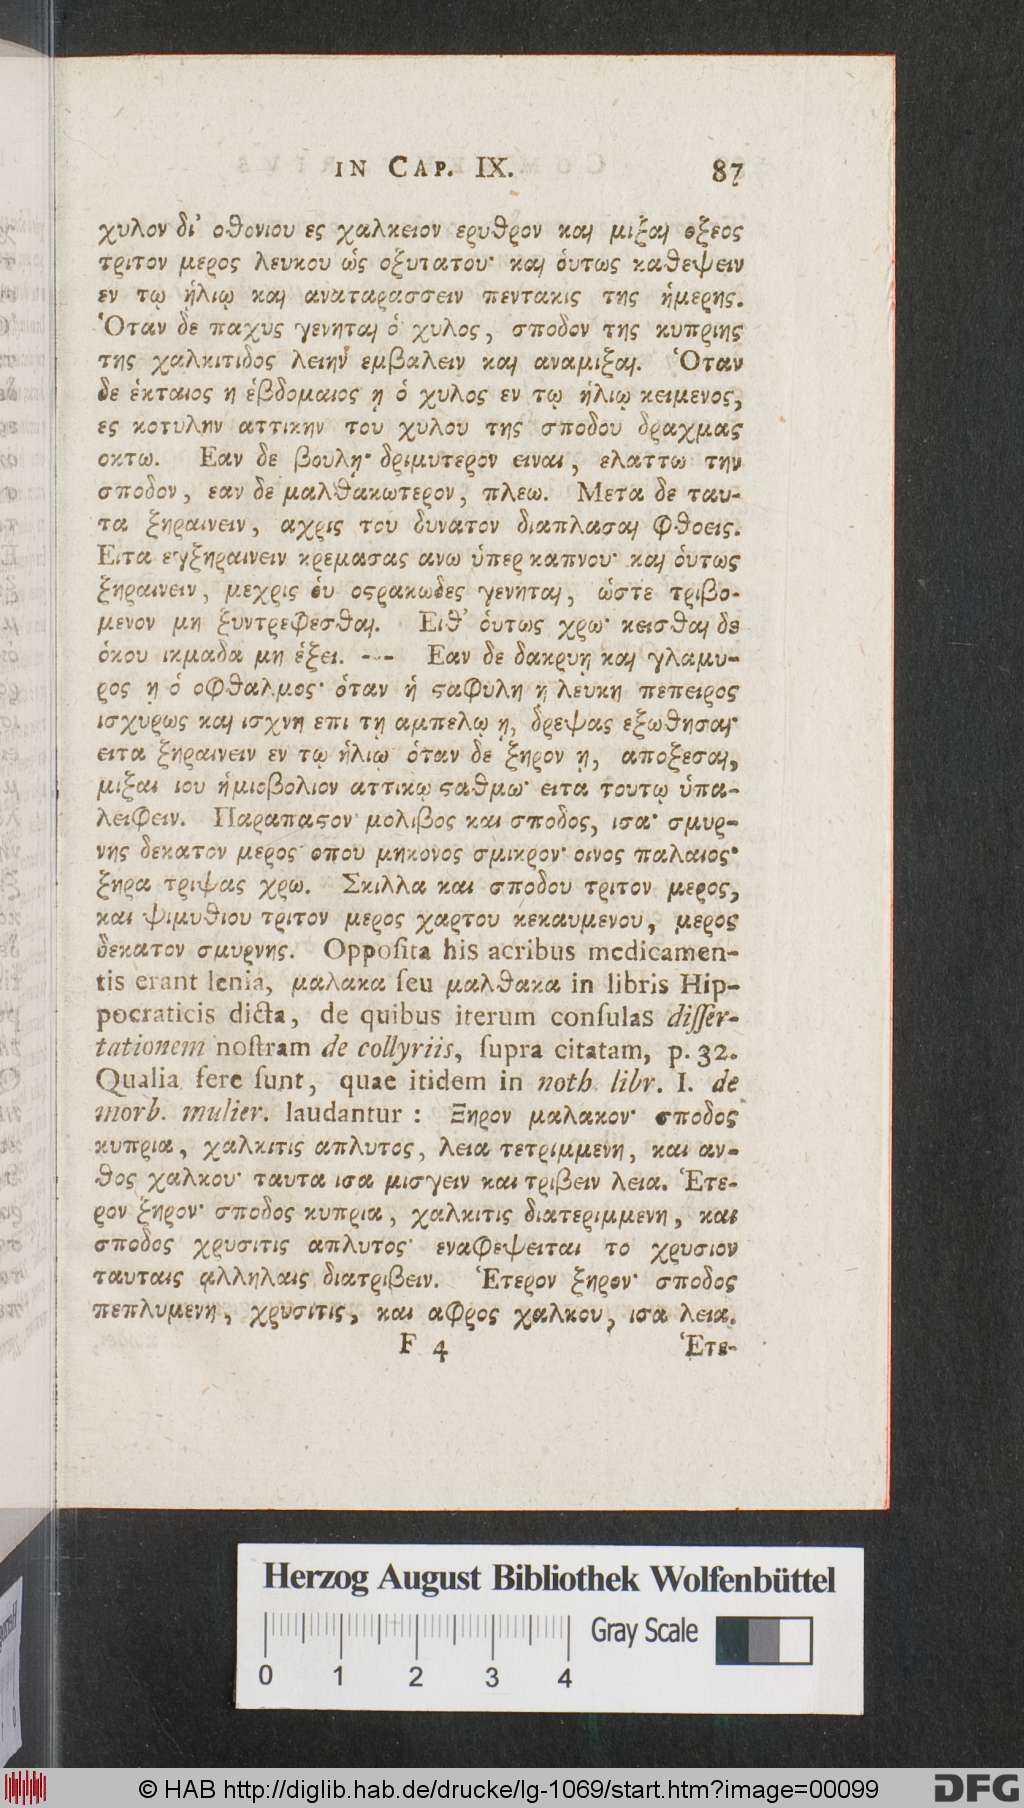 IN CAP. IX. 87
χυλον δι' οθονιου ες χαλκειον ερυθρον και μιξαι οξεος
τριτον μερος λευκου ὡς οξυτατου· και ὁυτως καθεψειν
εν τῳ ἡλιῳ και αναταρασσειν πεντακις της ἡμερης.
Ὁταν δε παχυς γενηται ὁ χυλος, σποδον της κυπριης
της χαλκιτιδος λειην εμβαλειν και αναμιξαι. Ὁταν
δε ἑκταιος η ἑβδομαιος ῃ ὁ χυλος εν τῳ ἡλιῳ κειμενος,
ες κοτυλην αττικην του χυλου της σποδου δραχμας
οκτω. Εαν δε βουλῃ· δριμυτερον ειναι, ελαττω την
σποδον, εαν δε μαλθακωτερον, πλεω. Μετα δε ταυ-
τα ξηραινειν, αχρις του δυνατον διαπλασαι φθοεις.
Ειτα εγξηραινειν κρεμασας ανω ὑπερ καπνου· και ὁυτως
ξηραινειν, μεχρις ὁυ οϛρακωδες γενηται, ὡστε τριβο-
μενον μη ξυντρεφεσθαι. Ειθ' ὁυτως χρω· κεισθαι δε
ὁκου ικμαδα μη ἑξει. --- Εαν δε δακρυῃ και γλαμυ-
ρος ῃ ὁ οφθαλμος· ὁταν ἡ ϛαφυλη η λευκη πεπειρος
ισχυρως και ισχνη επι τῃ αμπελῳ ῃ, δρεψας εξωθησαι·
ειτα ξηραινειν εν τῳ ἡλιῳ· ὁταν δε ξηρον ῃ, αποξεσαι,
μιξαι ιου ἡμιοβολιον αττικῳ ϛαθμω· ειτα τουτῳ ὑπα-
λειφειν. Παραπαϛον· μολιβος και σποδος, ισα· σμυρ-
νης δεκατον μερος· οπου μηκονος σμικρον· οινος παλαιος·
ξηρα τριψας χρω. Σκιλλα και σποδου τριτον μερος,
και ψιμυθιου τριτον μερος χαρτου κεκαυμενου, μερος
δεκατον σμυρνης. Oppoſita his acribus medicamen-
tis erant lenia, μαλακα ſeu μαλθακα in libris Hip-
pocraticis dicta, de quibus iterum conſulas diſſer-
tationem noſtram de collyriis, ſupra citatam, p. 32.
Qualia fere ſunt, quae itidem in noth. libr. I. de
morb. mulier. laudantur : Ξηρον μαλακον· σποδος
κυπρια, χαλκιτις απλυτος, λεια τετριμμενη, και αν-
θος χαλκου· ταυτα ισα μισγειν και τριβειν λεια. Ἑτε-
ρον ξηρον· σποδος κυπρια, χαλκιτις διατεριμμενη, και
σποδος χρυσιτις απλυτος· εναφεψειται το χρυσιον
ταυταις αλληλαις διατριβειν. Ἑτερον ξηρον· σποδος
πεπλυμενη, χρυσιτις, και αφρος χαλκου, ισα λεια.
F 4 Ἑτε-
Herzog August Bibliothek Wolfenbüttel
Gray Scale
0 1 2 3 4
© HAB http://diglib.hab.de/drucke/lg-1069/start.htm?image=00099
DFG